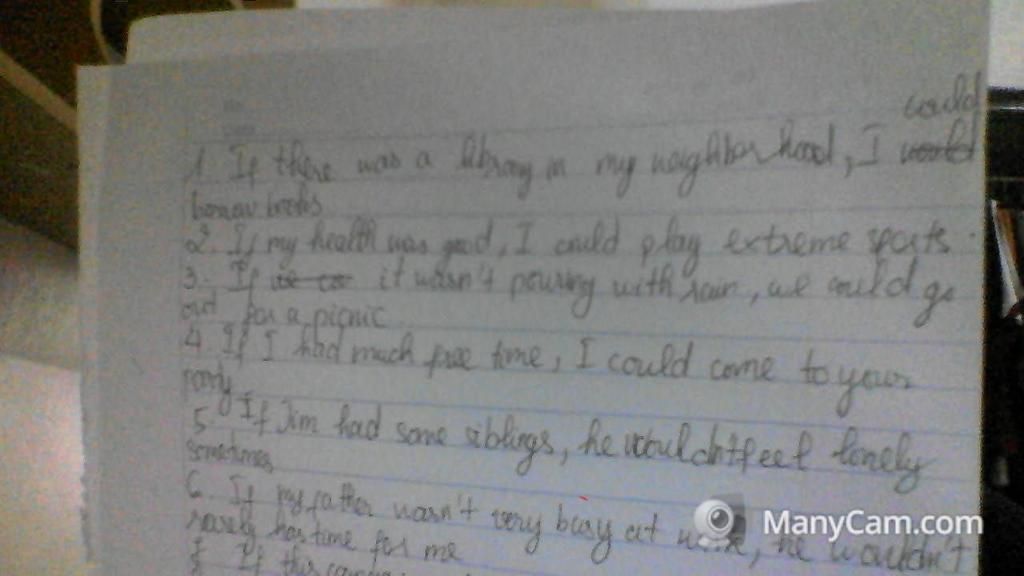 could
1. If there was a library in my neighborhood, I would
borrow books
2. If my health was good, I could play extreme sports.
3. If it wasn't pouring with rain, we could go
out for a picnic
4. If I had much free time, I could come to your
party
5. If Jim had some siblings, he wouldn't feel lonely
sometimes
6. If my father wasn't very busy at work, he wouldn't
rarely has time for me
If this
ManyCam.com